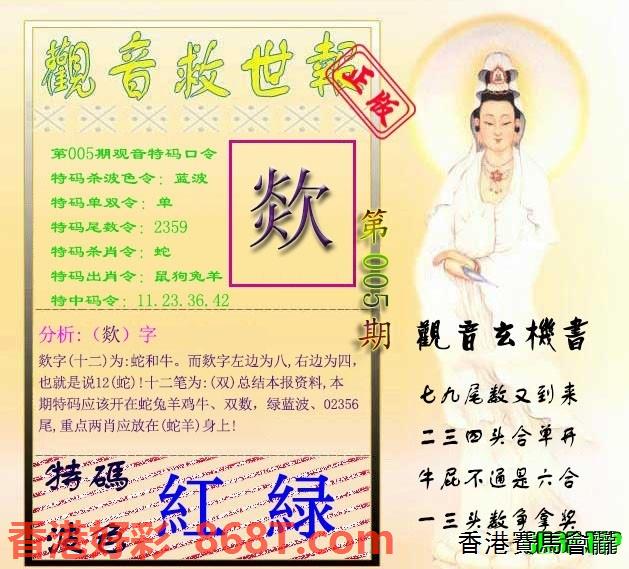 觀音救世報
正版
第005期观音特码口令
特码杀波色令：蓝波
特码单双令：单
特码尾数令：2359
特码杀肖令：蛇
特码出肖令：鼠狗兔羊
特中码令：11.23.36.42
欻
第005期
分析:（欻）字
欻字(十二)为:蛇和牛。而欻字左边为八,右边为四,
也就是说12(蛇)!十二笔为:(双)总结本报资料,本
期特码应该开在蛇兔羊鸡牛、双数，绿蓝波、02356
尾,重点两肖应放在(蛇羊)身上!
特碼
波色
紅 绿
觀音玄機書
七九尾数又到来
二三四头合单开
牛屁不通是六合
一三头数争拿奖
香港好彩 868T.com
香港賽馬會